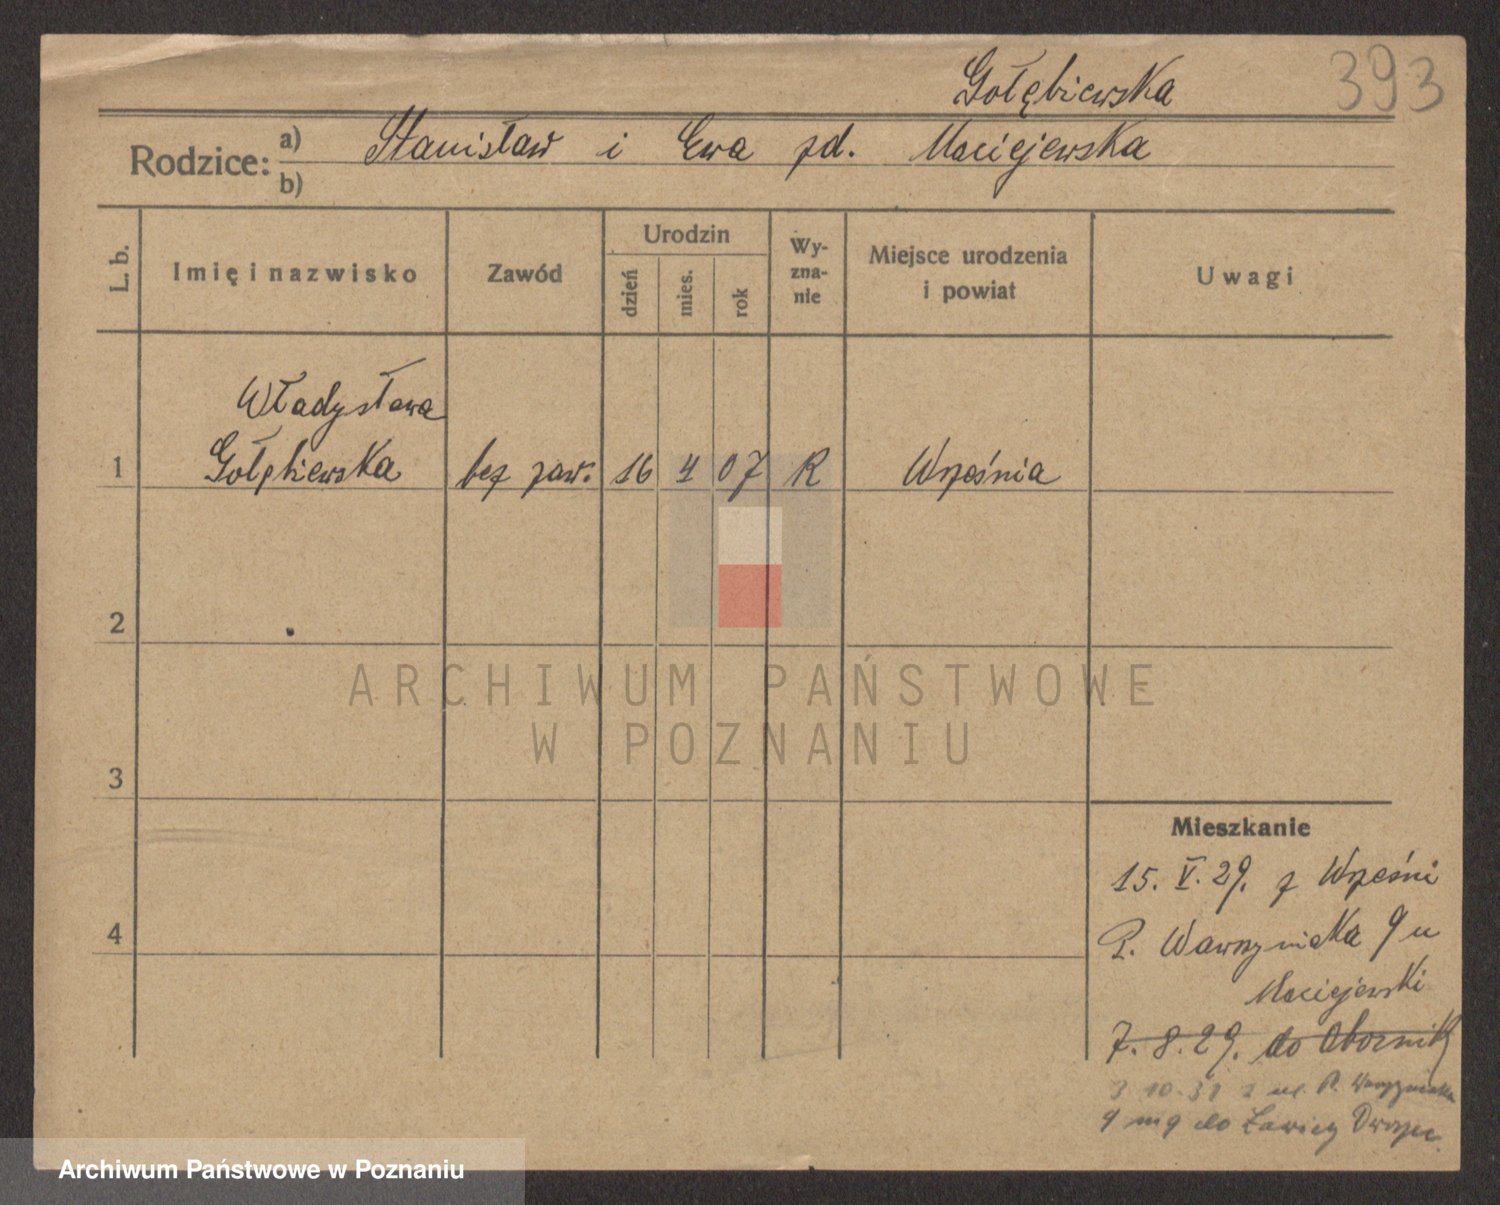 Gołębiewska 393
Rodzice: a) Stanisław i Ewa zd. Maciejewska
b)
L. b. Imię i nazwisko Zawód Urodzin dzień mies. rok Wyznanie Miejsce urodzenia i powiat Uwagi
Władysława
1 Gołębiewska bez zaw. 16 4 07 R Września
2
ARCHIWUM PAŃSTWOWE
W POZNANIU
3
Mieszkanie
15. V. 29. z Wrześni
4
P. Wawrzyniaka 9 u
Maciejewski
7. 8. 29. do Obornik
3 10. 31 z ul. P. Wawrzyniaka
9 m 9 do Ławicy Dworzec
Archiwum Państwowe w Poznaniu